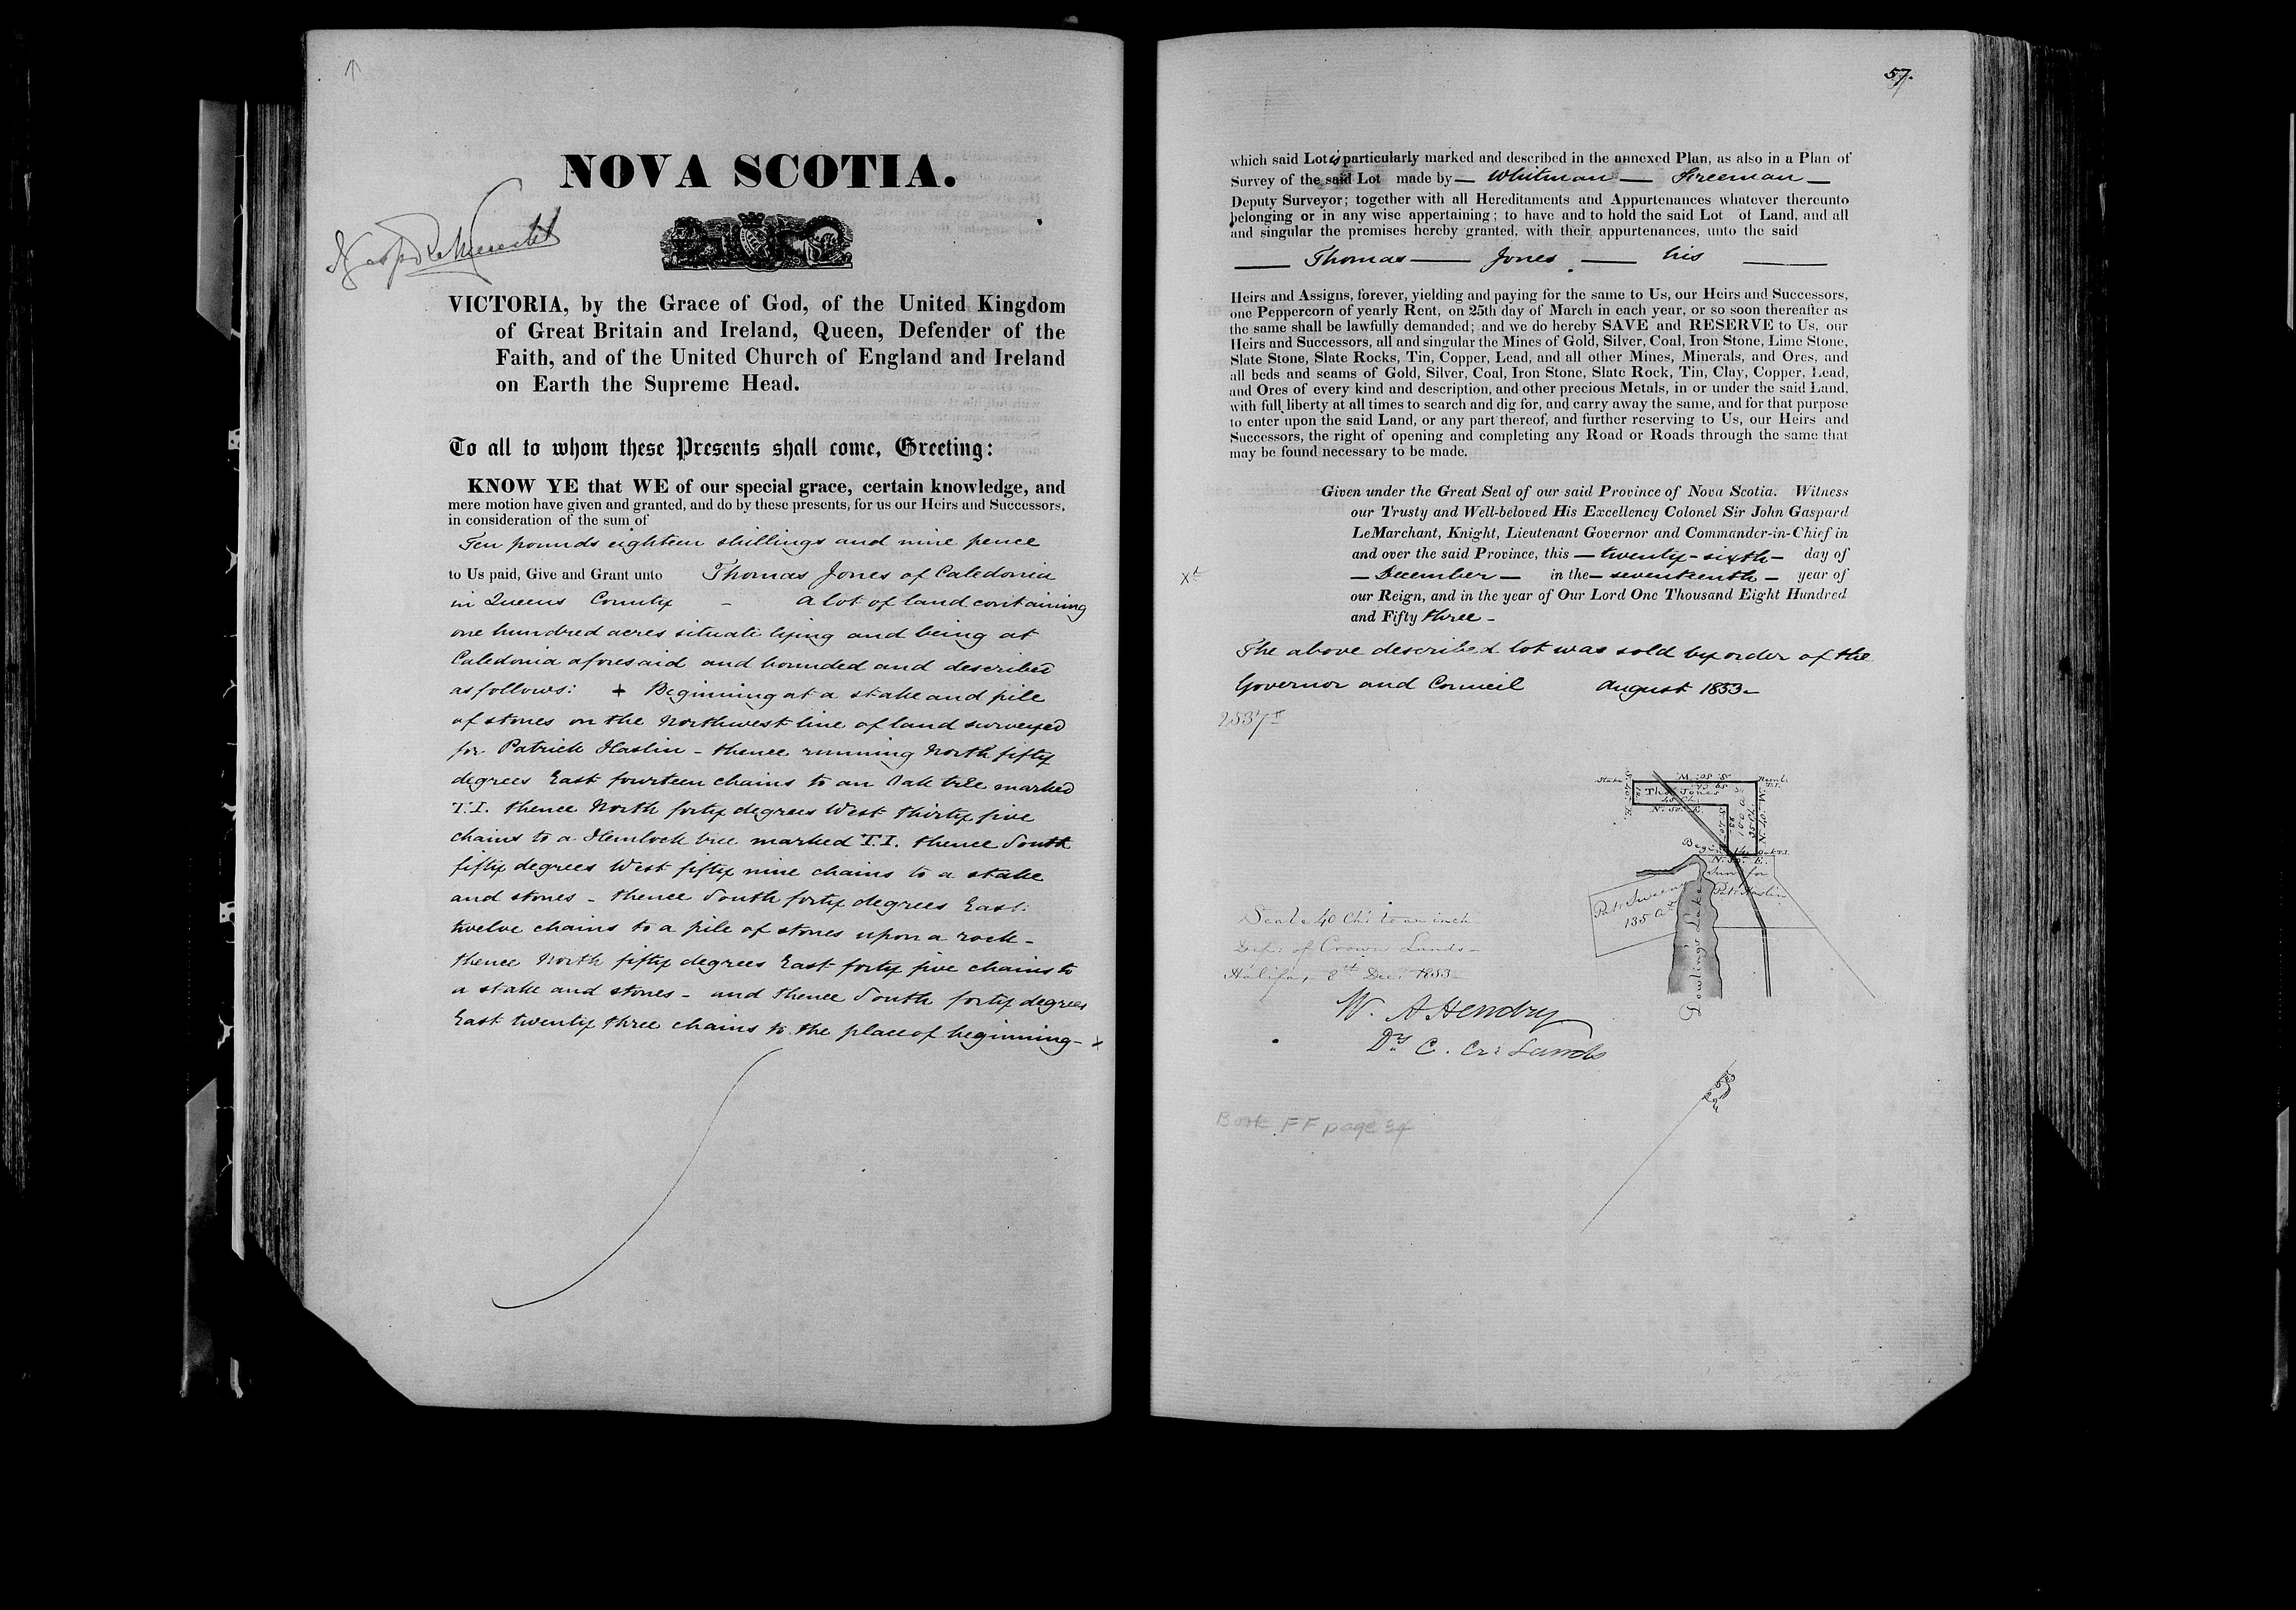 NOVA SCOTIA.
VICTORIA, by the Grace of God, of the United Kingdom
of Great Britain and Ireland, Queen, Defender of the
Faith, and of the United Church of England and Ireland
on Earth the Supreme Head.
To all to whom these Presents shall come, Greeting:
KNOW YE that WE of our special grace, certain knowledge, and
mere motion have given and granted, and do by these presents, for us our Heirs and Successors,
in consideration of the sum of
Ten pounds eighteen shillings and nine pence
to Us paid, Give and Grant unto Thomas Jones of Caledonia
in Queens County - a lot of land containing
one hundred acres situate lying and being at
Caledonia aforesaid and bounded and described
as follows: + Beginning at a stake and pile
of stones on the Northwest line of land surveyed
for Patrick Haslin - thence running North fifty
degrees East fourteen chains to an Oak tree marked
T.I. thence North forty degrees West thirty five
chains to a Hemlock tree marked T.I. thence South
fifty degrees West fifty nine chains to a stake
and stones - thence South forty degrees East
twelve chains to a pile of stones upon a rock -
thence North fifty degrees East forty five chains to
a stake and stones - and thence South forty degrees
East twenty three chains to the place of beginning - x
57.
which said Lot is particularly marked and described in the annexed Plan, as also in a Plan of
Survey of the said Lot made by — Whitman — Freeman —
Deputy Surveyor; together with all Hereditaments and Appurtenances whatever thereunto
belonging or in any wise appertaining; to have and to hold the said Lot of Land, and all
and singular the premises hereby granted, with their appurtenances, unto the said
— Thomas — Jones — his —
Heirs and Assigns, forever, yielding and paying for the same to Us, our Heirs and Successors,
one Peppercorn of yearly Rent, on 25th day of March in each year, or so soon thereafter as
the same shall be lawfully demanded; and we do hereby SAVE and RESERVE to Us, our
Heirs and Successors, all and singular the Mines of Gold, Silver, Coal, Iron Stone, Lime Stone,
Slate Stone, Slate Rocks, Tin, Copper, Lead, and all other Mines, Minerals, and Ores, and
all beds and seams of Gold, Silver, Coal, Iron Stone, Slate Rock, Tin, Clay, Copper, Lead,
and Ores of every kind and description, and other precious Metals, in or under the said Land,
with full liberty at all times to search and dig for, and carry away the same, and for that purpose
to enter upon the said Land, or any part thereof, and further reserving to Us, our Heirs and
Successors, the right of opening and completing any Road or Roads through the same that
may be found necessary to be made.
Given under the Great Seal of our said Province of Nova Scotia. Witness
our Trusty and Well-beloved His Excellency Colonel Sir John Gaspard
LeMarchant, Knight, Lieutenant Governor and Commander-in-Chief in
and over the said Province, this — twenty-sixth — day of
— December — in the — seventeenth — year of
our Reign, and in the year of Our Lord One Thousand Eight Hundred
and Fifty three -
The above described lot was sold by order of the
Governor and Council August 1853 -
2537
Stake
S. 50. W.
Heml.
T.I.
Thos Jones
45 Ch.
N. 50. E.
100 a
Beg.
14
N. 50. E.
Surv. for
Patk Haslin
135 a
Dowlings Lake
Scale 40 Chs to an inch
Dep. of Crown Lands -
Halifax 8th Dec. 1853
W. A Hendry
Dy C. Cr: Lands
Book FF page 34